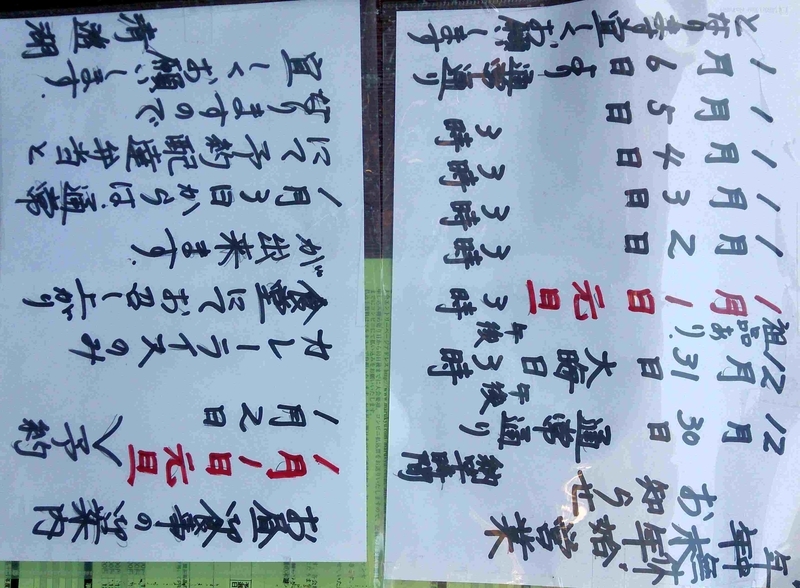 年末年始営業
お知らせ
終業時間
12月30日 通常通り
12月31日 大晦日 午後3時
1月1日 元旦 午後3時
1月2日 3時
1月3日 3時
1月4日 3時
1月5日 3時
1月6日より 通常通り
となります宜しくお願いします
お昼御食事の御案内
1月1日元旦
1月2日
予約
カレーライスのみ
食堂にてお召し上がり
が出来ます.
1月3日からは通常
にて予約配達弁当と
なりますので
宜しくお願いします.